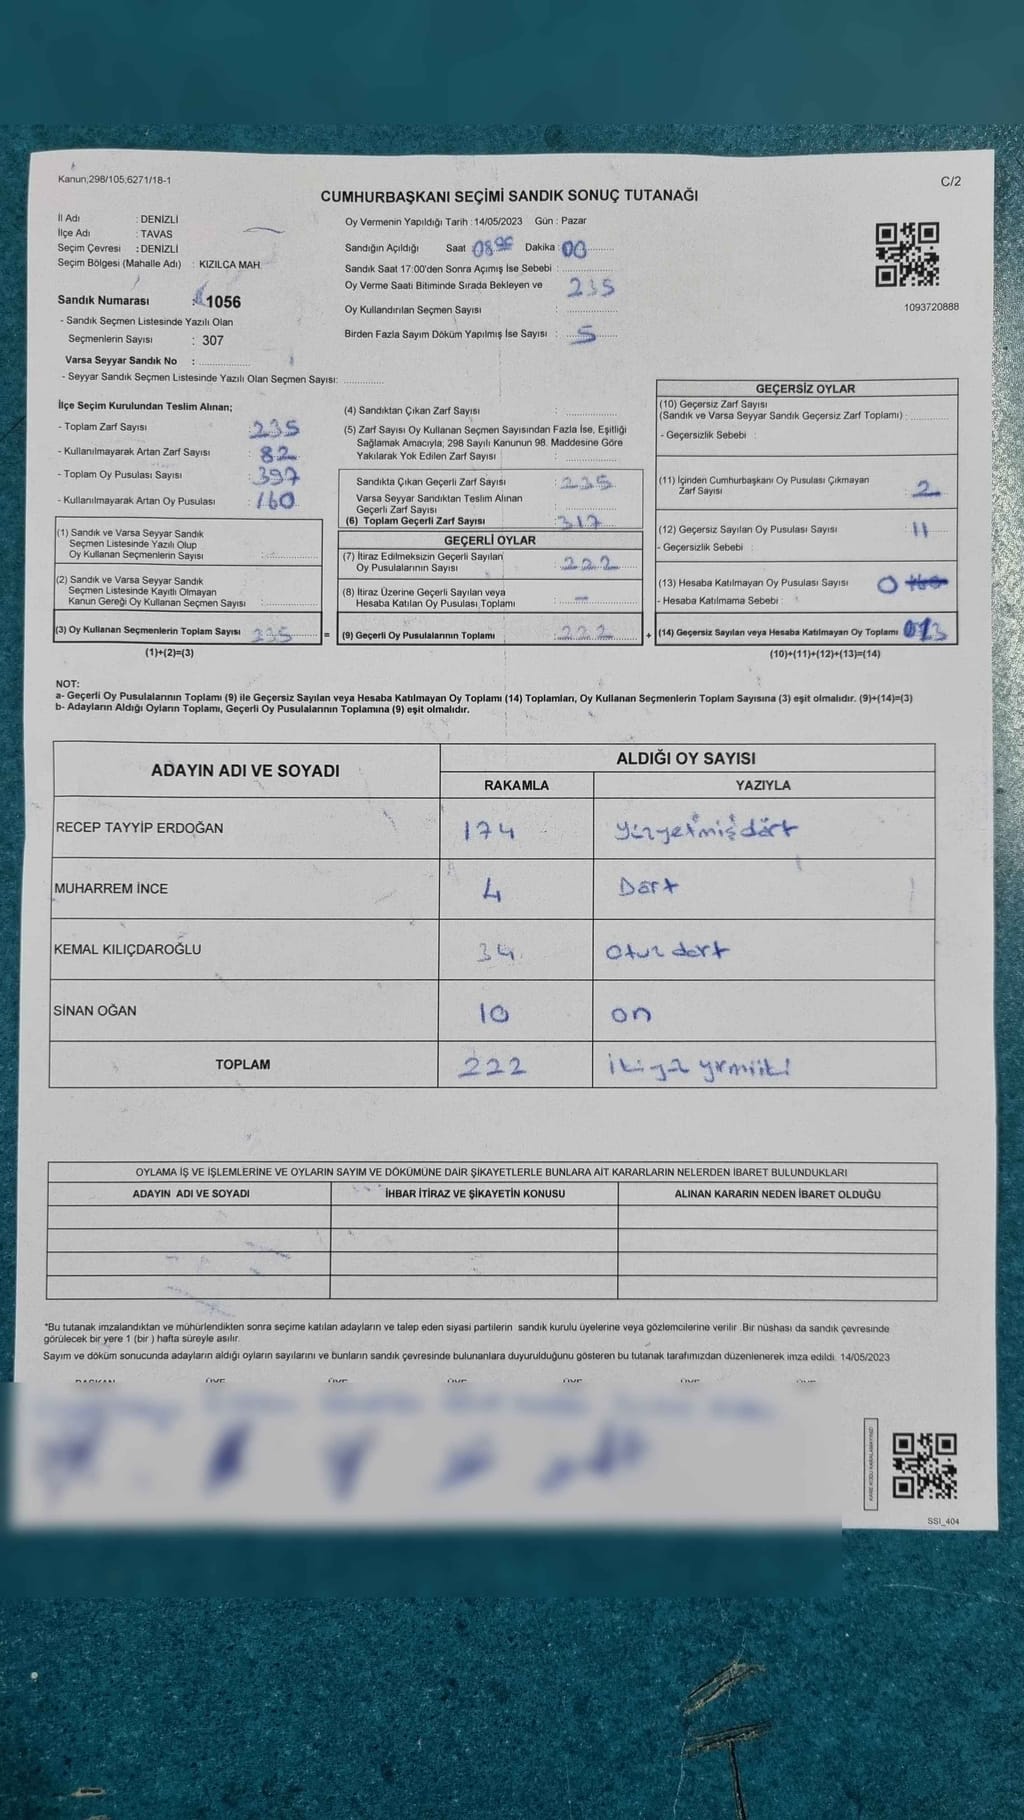 Kanun;298/105;6271/18-1
C/2
CUMHURBAŞKANI SEÇİMİ SANDIK SONUÇ TUTANAĞI
İl Adı : DENİZLİ
İlçe Adı : TAVAS
Seçim Çevresi : DENİZLİ
Seçim Bölgesi (Mahalle Adı) : KIZILCA MAH.
Sandık Numarası : 1056
- Sandık Seçmen Listesinde Yazılı Olan
Seçmenlerin Sayısı : 307
Varsa Seyyar Sandık No :
- Seyyar Sandık Seçmen Listesinde Yazılı Olan Seçmen Sayısı:
Oy Vermenin Yapıldığı Tarih : 14/05/2023 Gün : Pazar
Sandığın Açıldığı Saat 08 Dakika : 00
Sandık Saat 17:00'den Sonra Açımış İse Sebebi :
Oy Verme Saati Bitiminde Sırada Bekleyen ve 235
Oy Kullandırılan Seçmen Sayısı :
Birden Fazla Sayım Döküm Yapılmış İse Sayısı : 5
1093720888
İlçe Seçim Kurulundan Teslim Alınan;
- Toplam Zarf Sayısı : 235
- Kullanılmayarak Artan Zarf Sayısı : 82
- Toplam Oy Pusulası Sayısı : 397
- Kullanılmayarak Artan Oy Pusulası : 160
(1) Sandık ve Varsa Seyyar Sandık
Seçmen Listesinde Yazılı Olup
Oy Kullanan Seçmenlerin Sayısı :
(2) Sandık ve Varsa Seyyar Sandık
Seçmen Listesinde Kayıtlı Olmayan
Kanun Gereği Oy Kullanan Seçmen Sayısı :
(3) Oy Kullanan Seçmenlerin Toplam Sayısı : 235 =
(1)+(2)=(3)
(4) Sandıktan Çıkan Zarf Sayısı :
(5) Zarf Sayısı Oy Kullanan Seçmen Sayısından Fazla İse, Eşitliği
Sağlamak Amacıyla; 298 Sayılı Kanunun 98. Maddesine Göre
Yakılarak Yok Edilen Zarf Sayısı :
Sandıkta Çıkan Geçerli Zarf Sayısı : 235
Varsa Seyyar Sandıktan Teslim Alınan
Geçerli Zarf Sayısı :
(6) Toplam Geçerli Zarf Sayısı : 317
GEÇERLİ OYLAR
(7) İtiraz Edilmeksizin Geçerli Sayılan
Oy Pusulalarının Sayısı : 222
(8) İtiraz Üzerine Geçerli Sayılan veya
Hesaba Katılan Oy Pusulası Toplamı : -
(9) Geçerli Oy Pusulalarının Toplamı : 222 +
GEÇERSİZ OYLAR
(10) Geçersiz Zarf Sayısı
(Sandık ve Varsa Seyyar Sandık Geçersiz Zarf Toplamı) :
- Geçersizlik Sebebi :
(11) İçinden Cumhurbaşkanı Oy Pusulası Çıkmayan
Zarf Sayısı : 2
(12) Geçersiz Sayılan Oy Pusulası Sayısı : 11
- Geçersizlik Sebebi :
(13) Hesaba Katılmayan Oy Pusulası Sayısı : 0
- Hesaba Katılmama Sebebi :
(14) Geçersiz Sayılan veya Hesaba Katılmayan Oy Toplamı : 013
(10)+(11)+(12)+(13)=(14)
NOT:
a- Geçerli Oy Pusulalarının Toplamı (9) ile Geçersiz Sayılan veya Hesaba Katılmayan Oy Toplamı (14) Toplamları, Oy Kullanan Seçmenlerin Toplam Sayısına (3) eşit olmalıdır. (9)+(14)=(3)
b- Adayların Aldığı Oyların Toplamı, Geçerli Oy Pusulalarının Toplamına (9) eşit olmalıdır.
ADAYIN ADI VE SOYADI ALDIĞI OY SAYISI
RAKAMLA YAZIYLA
RECEP TAYYİP ERDOĞAN 174 Yüzyetmişdört
MUHARREM İNCE 4 Dört
KEMAL KILIÇDAROĞLU 34 otuz dört
SİNAN OĞAN 10 on
TOPLAM 222 ikiyüz yirmiiki
OYLAMA İŞ VE İŞLEMLERİNE VE OYLARIN SAYIM VE DÖKÜMÜNE DAİR ŞİKAYETLERLE BUNLARA AİT KARARLARIN NELERDEN İBARET BULUNDUKLARI
ADAYIN ADI VE SOYADI İHBAR İTİRAZ VE ŞİKAYETİN KONUSU ALINAN KARARIN NEDEN İBARET OLDUĞU
*Bu tutanak imzalandıktan ve mühürlendikten sonra seçime katılan adayların ve talep eden siyasi partilerin sandık kurulu üyelerine veya gözlemcilerine verilir .Bir nüshası da sandık çevresinde
görülecek bir yere 1 (bir ) hafta süreyle asılır.
Sayım ve döküm sonucunda adayların aldığı oyların sayılarını ve bunların sandık çevresinde bulunanlara duyurulduğunu gösteren bu tutanak tarafımızdan düzenlenerek imza edildi. 14/05/2023
SSI_404